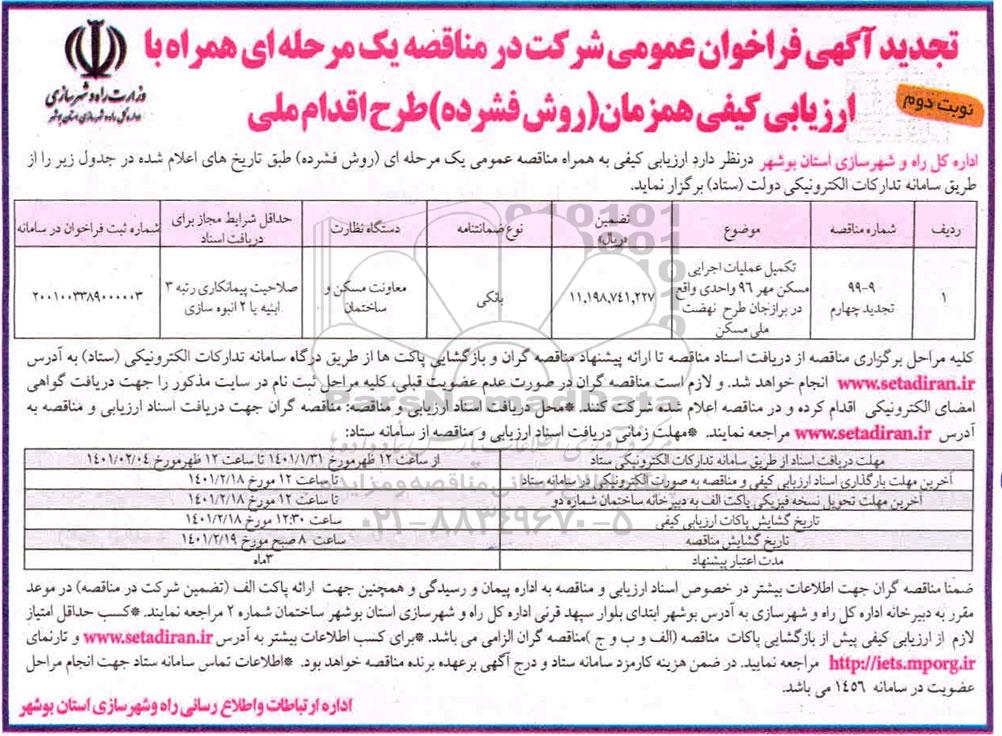 تجدید آگهی فراخوان عمومی شرکت در مناقصه یک مرحله ای همراه با
ارزیابی کیفی همزمان(روش فشرده)طرح اقدام ملی
نوبت دوم
وزارت راه و شهرسازی
اداره کل راه و شهرسازی استان بوشهر
اداره کل راه و شهرسازی استان بوشهر درنظر دارد ارزیابی کیفی به همراه مناقصه عمومی یک مرحله ای (روش فشرده) طبق تاریخ های اعلام شده در جدول زیر را از
طریق سامانه تدارکات الکترونیکی دولت (ستاد) برگزار نماید.
ردیف شماره مناقصه موضوع تضمین (ریال) نوع ضمانتنامه دستگاه نظارت حداقل شرایط مجاز برای دریافت اسناد شماره ثبت فراخوان در سامانه
۱ ۹۹-۹ تجدید چهارم تکمیل عملیات اجرایی مسکن مهر ۹۶ واحدی واقع در برازجان طرح نهضت ملی مسکن ۱۱,۱۹۸,۷۴۱,۲۲۷ بانکی معاونت مسکن و ساختمان صلاحیت پیمانکاری رتبه ۳ ابنیه یا ۲ انبوه سازی ۲۰۰۱۰۰۳۳۸۹۰۰۰۰۰۳
کلیه مراحل برگزاری مناقصه از دریافت اسناد مناقصه تا ارائه پیشنهاد مناقصه گران و بازگشایی پاکت ها از طریق درگاه سامانه تدارکات الکترونیکی (ستاد) به آدرس
www.setadiran.ir انجام خواهد شد. و لازم است مناقصه گران در صورت عدم عضویت قبلی، کلیه مراحل ثبت نام در سایت مذکور را جهت دریافت گواهی
امضای الکترونیکی اقدام کرده و در مناقصه اعلام شده شرکت کنند. *محل دریافت اسناد ارزیابی و مناقصه: مناقصه گران جهت دریافت اسناد ارزیابی و مناقصه به
آدرس www.setadiran.ir مراجعه نمایند. *مهلت زمانی دریافت اسناد ارزیابی و مناقصه از سامانه ستاد:
مهلت دریافت اسناد از طریق سامانه تدارکات الکترونیکی ستاد از ساعت ۱۲ ظهرمورخ ۱۴۰۱/۱/۳۱ تا ساعت ۱۲ ظهرمورخ ۱۴۰۱/۰۲/۰۴
آخرین مهلت بارگذاری اسناد ارزیابی کیفی و مناقصه به صورت الکترونیکی در سامانه ستاد تا ساعت ۱۲ مورخ ۱۴۰۱/۲/۱۸
آخرین مهلت تحویل نسخه فیزیکی پاکت الف به دبیرخانه ساختمان شماره دو تا ساعت ۱۲ مورخ ۱۴۰۱/۲/۱۸
تاریخ گشایش پاکات ارزیابی کیفی ساعت ۱۲:۳۰ مورخ ۱۴۰۱/۲/۱۸
تاریخ گشایش مناقصه ساعت ۸ صبح مورخ ۱۴۰۱/۲/۱۹
مدت اعتبار پیشنهاد ۳ماه
ضمنا مناقصه گران جهت اطلاعات بیشتر در خصوص اسناد ارزیابی و مناقصه به اداره پیمان و رسیدگی و همچنین جهت ارائه پاکت الف (تضمین شرکت در مناقصه) در موعد
مقرر به دبیرخانه اداره کل راه و شهرسازی به آدرس بوشهر ابتدای بلوار سپهد قرنی اداره کل راه و شهرسازی استان بوشهر ساختمان شماره ۲ مراجعه نمایند. *کسب حداقل امتیاز
لازم از ارزیابی کیفی پیش از بازگشایی پاکات مناقصه (الف و ب و ج )مناقصه گران الزامی می باشد. *برای کسب اطلاعات بیشتر به آدرس www.setadiran.ir و تارنمای
http://iets.mporg.ir مراجعه نمایید. در ضمن هزینه کارمزد سامانه ستاد و درج آگهی برعهده برنده مناقصه خواهد بود. *اطلاعات تماس سامانه ستاد جهت انجام مراحل
عضویت در سامانه ۱۴۵۶ می باشد.
اداره ارتباطات واطلاع رسانی راه وشهرسازی استان بوشهر
ParsNamadData
۰۲۱-۸۸۳۴۹۶۷۰-۵